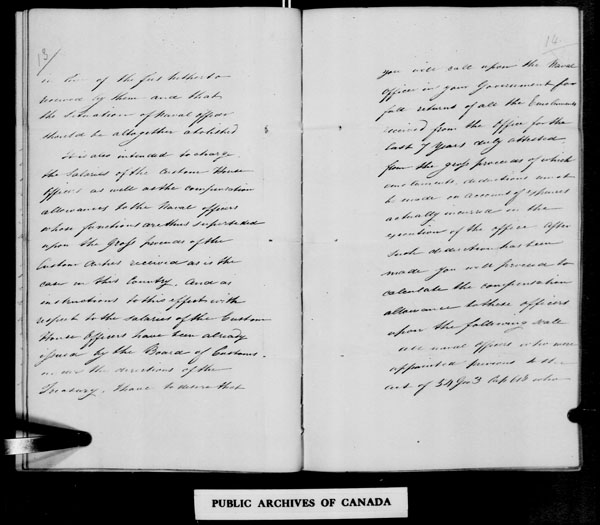 13
in lieu of the fees hitherto
received by them and that
the situation of Naval Officer
should be altogether abolished
It is also intended to charge
the Salaries of the Custom House
Officers as well as the compensation
allowances to the Naval officers
whose functions are thus superseded
upon the Gross proceeds of the
Custom duties received as is the
case in this Country. And as
instructions to this effect with
respect to the Salaries of the Custom
House Officers have been already
issued by the Board of Customs
under the directions of the
Treasury. I have to desire that
14
you will call upon the Naval
Officer in your Government for
full returns of all the Emoluments
received from the Office for the
last 7 Years duly attested
from the gross proceeds of which
emoluments, deductions must
be made on account of expenses
actually incurred in the
execution of the office After
such deduction has been
made you will proceed to
calculate the compensation
allowance to these officers
upon the following scale
naval officers who were
appointed previous to the
act of 54 Geo 3 Cap who
PUBLIC ARCHIVES OF CANADA